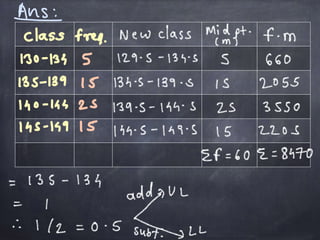 Ans:
class freq. New class Mid pt. (m) f.m
130-134 5 129.5-134.5 5 660
135-139 15 134.5-139.5 15 2055
140-144 25 139.5-144.5 25 3550
145-149 15 144.5-149.5 15 2205
Σf=60 Σ=8470
= 135-134
= 1
∴ 1/2 = 0.5
add. UL
subt. LL